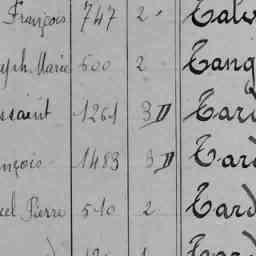 François 747 2 Calv
eph Marie 500 2 Tang
ssaint 1261 3 D Tard
nçois 1483 3 D Tard
uel Pierre 510 2 Tard